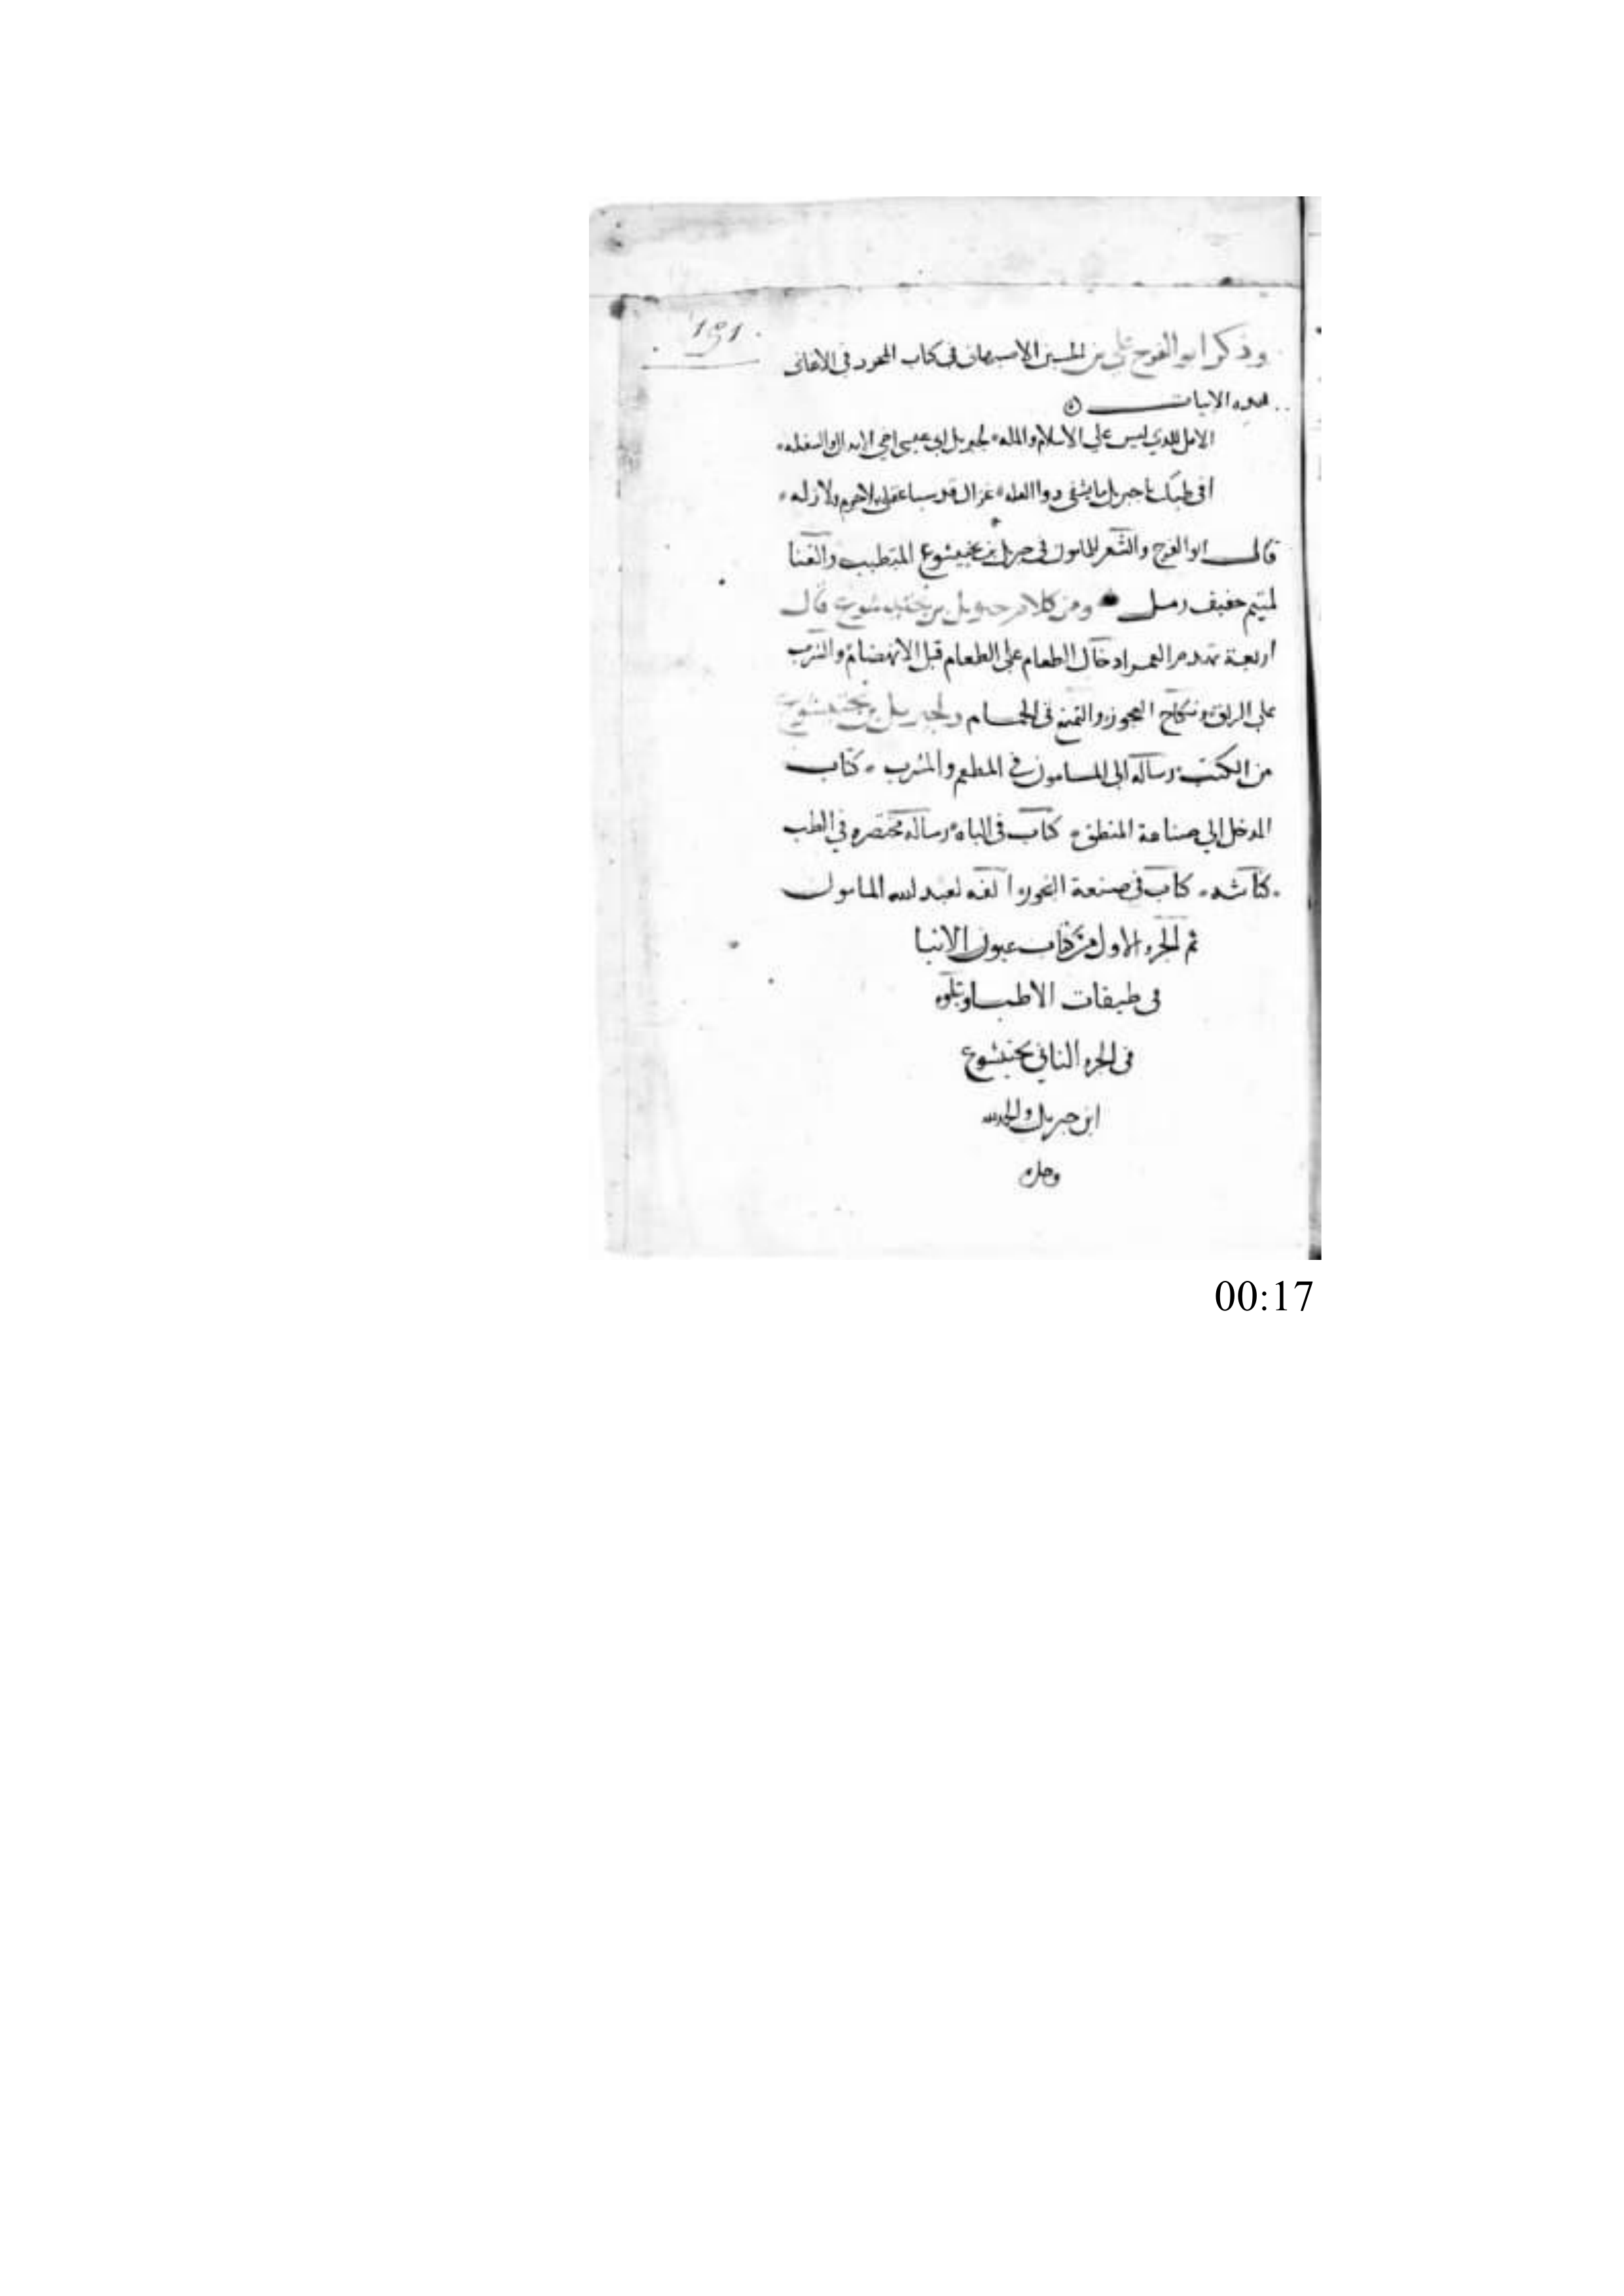 191
وذكر ابو الفرج علي بن الحسين الاصبهانى فى كتاب المجرد فى الاغانى
هذه الابيات
الا قل للذي ليس على الاسلام والمله لجبريل ابى عيسى اخى الاندال والسفله
افى طبك يا جبريل ما يشفى دوا العله غزال قد سبا عقلى بلا جرم ولا زله
قال ابو الفرج والشعر للمامون فى جبريل بن بختيشوع المتطبب والغنا
لمتيم خفيف رمل ومن كلام جبريل بن بختيشوع قال
اربعة تهدم العمر ادخال الطعام على الطعام قبل الانهضام والشرب
على الريق ونكاح العجوز والتمتع فى الحمام ولجبريل بن بختيشوع
من الكتب رساله الى المامون فى المطعم والمشرب كتاب
المدخل الى صناعة المنطق كتاب فى الباه رساله مختصره فى الطب
كناشه كتاب فى صنعة البخور الفه لعبد الله المامون
تم الجزء الاول من كتاب عيون الانبا
فى طبقات الاطبا ويتلوه
فى الجزء الثانى بختيشوع
ابن جبريل والحمد لله
وحده
00:17